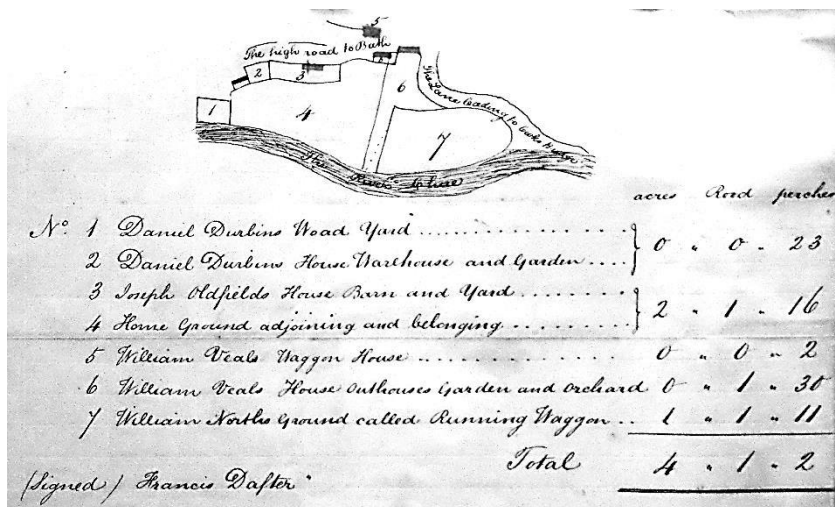 5
The high road to Bath
2
3
6
1
4
7
The Lane leading to Cooks Bridge
The River Chew
acres Rood perches
No 1 Daniel Durbins Woad Yard ..................
2 Daniel Durbins House Warehouse and Garden .... 0 " 0 " 23
3 Joseph Oldfields House Barn and Yard ........
4 Home Ground adjoining and belonging ......... 2 " 1 " 16
5 William Veals Waggon House ............... 0 " 0 " 2
6 William Veals House Outhouses Garden and Orchard 0 " 1 " 30
7 William Norths Ground called Running Waggon .. 1 " 1 " 11
Total 4 " 1 " 2
(Signed) Francis Dafter